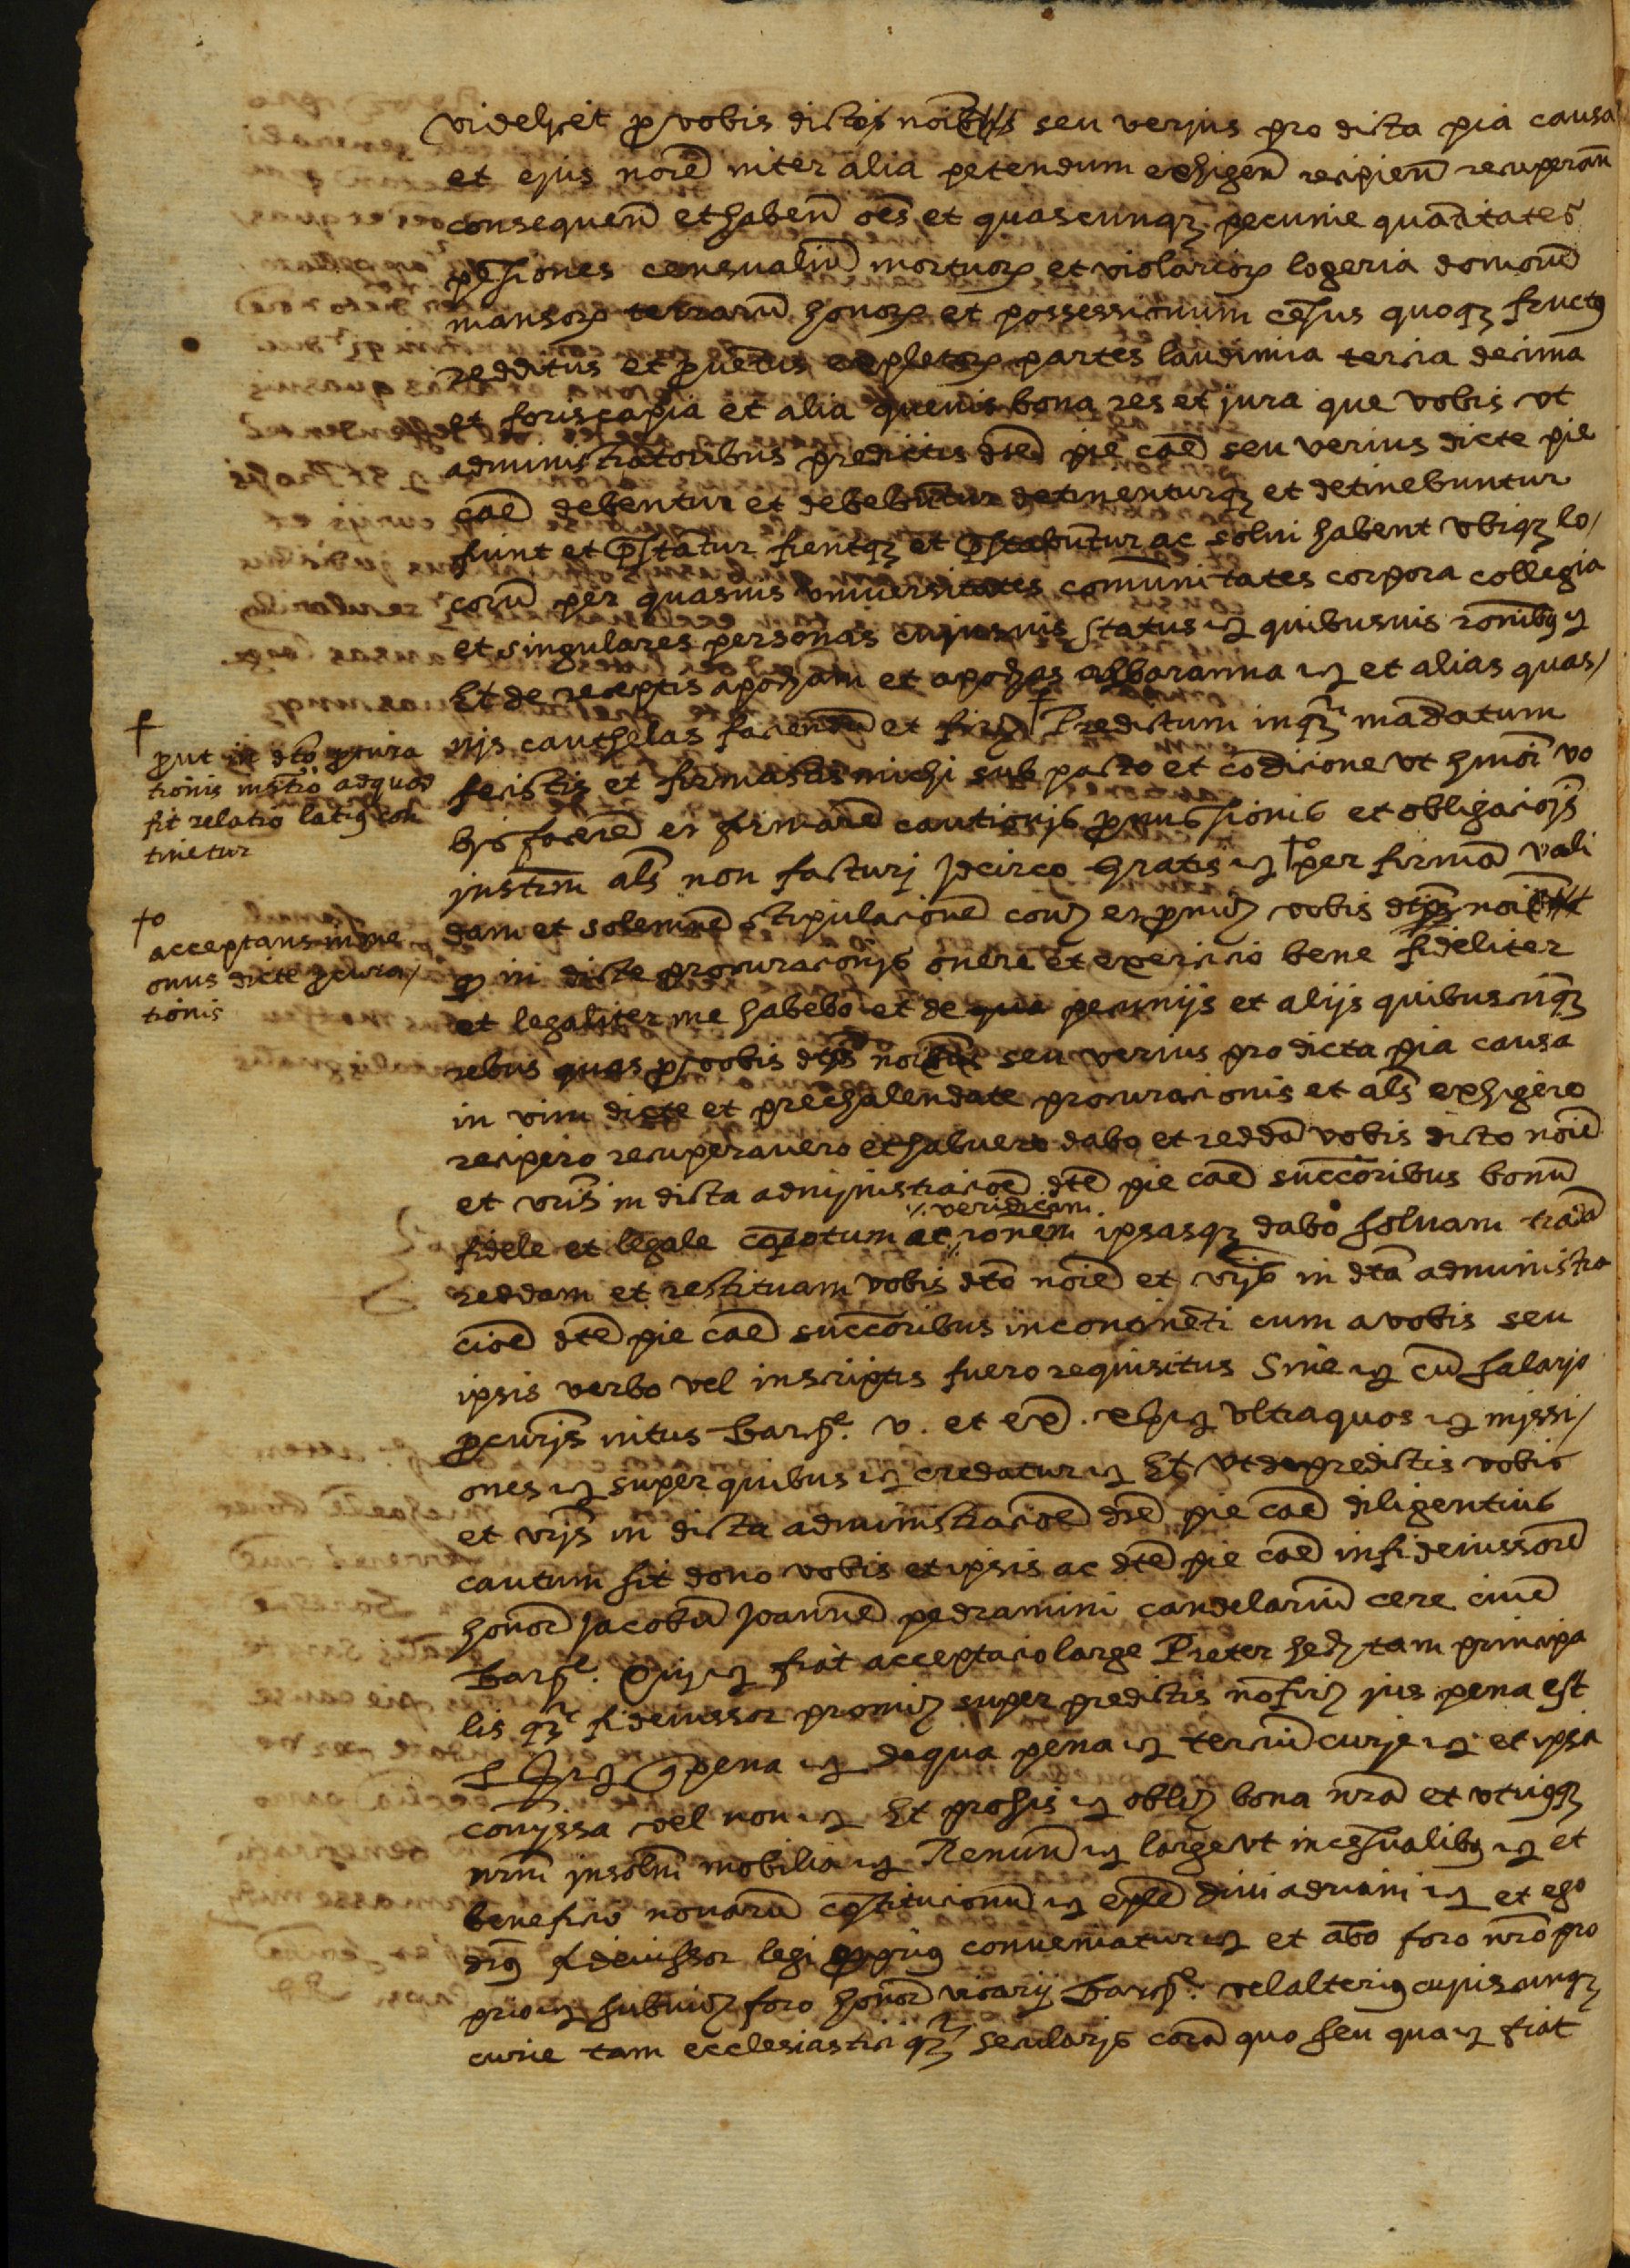 videlicet ꝑ vobis dictis noi͞bus seu verius pro dicta pia causa
et ejus noi͞e inter alia petendum exhigen͞ recipien͞ recuperan͞
consequen͞ et haben͞ oe͞s et quascunqꝫ pecunie quantitates
pe͞siones censualiu͞ mortuoꝝ et violarioꝝ logeria domoru͞
mansoꝝ terraru͞ honoꝝ et possessionum ce͞sus quoqꝫ fructꝰ
redditus et ꝓue͞tus expletoꝝ partes laudimia tercia decima
et foriscapia et alia queuis bona res et jura que vobis vt
administratoribus predictis dte͞ pie cae͞ seu verius dicte pie
cae͞ debentur et debebu͞tur detinenturqꝫ et detinebuntur
fiunt et p͞statur fientqꝫ et p͞stabu͞tur ac solui habent vbiqꝫ lo/
coru͞ per quasuis vniuersitates comunitates corpora collegia
et singulares personas cujusuis status ⁊c̃ quibusuis ro͞nibꝰ ⁊c̃
Et de receptis apocham et apochas albaranna ⁊c̃ et alias quas/
uis cauthelas faciendu͞ et fir͞ † Predictum inqꝫ mandatum
fecistis et firmastis michi sub pacto et co͞dicione vt hmo͞i vo
bis facere͞ et firmare͞ cautionis ꝓmissionis et obligacio͞is
instr͞m al͞s non facturi Idcirco Gratis ⁊c̃ †o per firma͞ vali
dam et solemne͞ stipulacione͞ conu͞ et ꝓmi͞ vobis dtis͞ noi͞bus
ꝙ in dicte procuracionis onere et exercicio bene fideliter
et legaliter me habebo et de pecuniis et aliis quibuscu͞qꝫ
rebus quas ꝑ vobis dtis͞ noi͞bus seu verius pro dicta pia causa
in vim dicte et prechalendate procuracionis et al͞s exhigero
recipero recuperauero et habuero dabo et redda͞ vobis dicto noi͞e
et vr͞is in dicta administracio͞e dte͞ pie cae͞ succ͞oribus bonu͞
fidele et legale co͞potum ac ⁒ veridicam ⁒ ro͞nem ipsasqꝫ dabo soluam trada͞
reddam et restituam vobis dto͞ noi͞e et vr͞is in dta͞ administra
cio͞e dte͞ pie cae͞ succ͞oribus incontine͞ti cum a vobis seu
ipsis verbo vel inscriptis fuero requisitus Sine ⁊c̃ cu͞ salario
ꝓcur͞is intus Barch͞e. v. et ex͞. ⁊c̃ vltra quos ⁊c̃ missi/
ones ⁊c̃ super quibus ⁊c̃ credatur ⁊c̃ Et vt de predictis vobis
et vr͞is in dicta administracio͞e dte͞ pie cae͞ diligentius
cautum sit dono vobis et ipsis ac dte͞ pie cae͞ in fideiussore͞
honor͞ Jacobu͞ Joanne͞ pedramini candelariu͞ cere ciue͞
Barch͞e. Qui ⁊c̃ fiat acceptacio large Preter hec tam principa
lis qꝫ fideiussor promi͞ super predictis no͞ fir͞ jus pena est
⁊c̃ pena ⁊c̃ de qua pena ⁊c̃ terciu͞ curie ⁊c̃ et ipsa
comissa vel non ⁊c̃ Et pro his ⁊c̃ obli͞ bona nr͞a et vtriusqꝫ
nr͞m insolm͞ mobilia ⁊c̃ Renun͞ ⁊c̃ large vt in ce͞sualibꝰ ⁊c̃ et
beneficio nouaru͞ co͞stitucionu͞ ⁊c̃ eple͞ diui adriani ⁊c̃ et ego
dtꝰ͞ fideiussor legi ꝙ priꝰ conueniatur ⁊c̃ et a͞bo foro nr͞o pro
prio ⁊c̃ submi͞ foro honor͞ vicarii Barch͞e. vel alteriꝰ cujuscunqꝫ
curie tam ecclesiastice qꝫ secularis cora͞ quo seu qua ⁊c̃ fiat
†
ꝓut in dto͞ ꝓcura
tionis instr͞o ad quod
fit relatio latiꝰ con
tinetur
†o
acceptans in me
onus dicte ꝓcura/
tionis